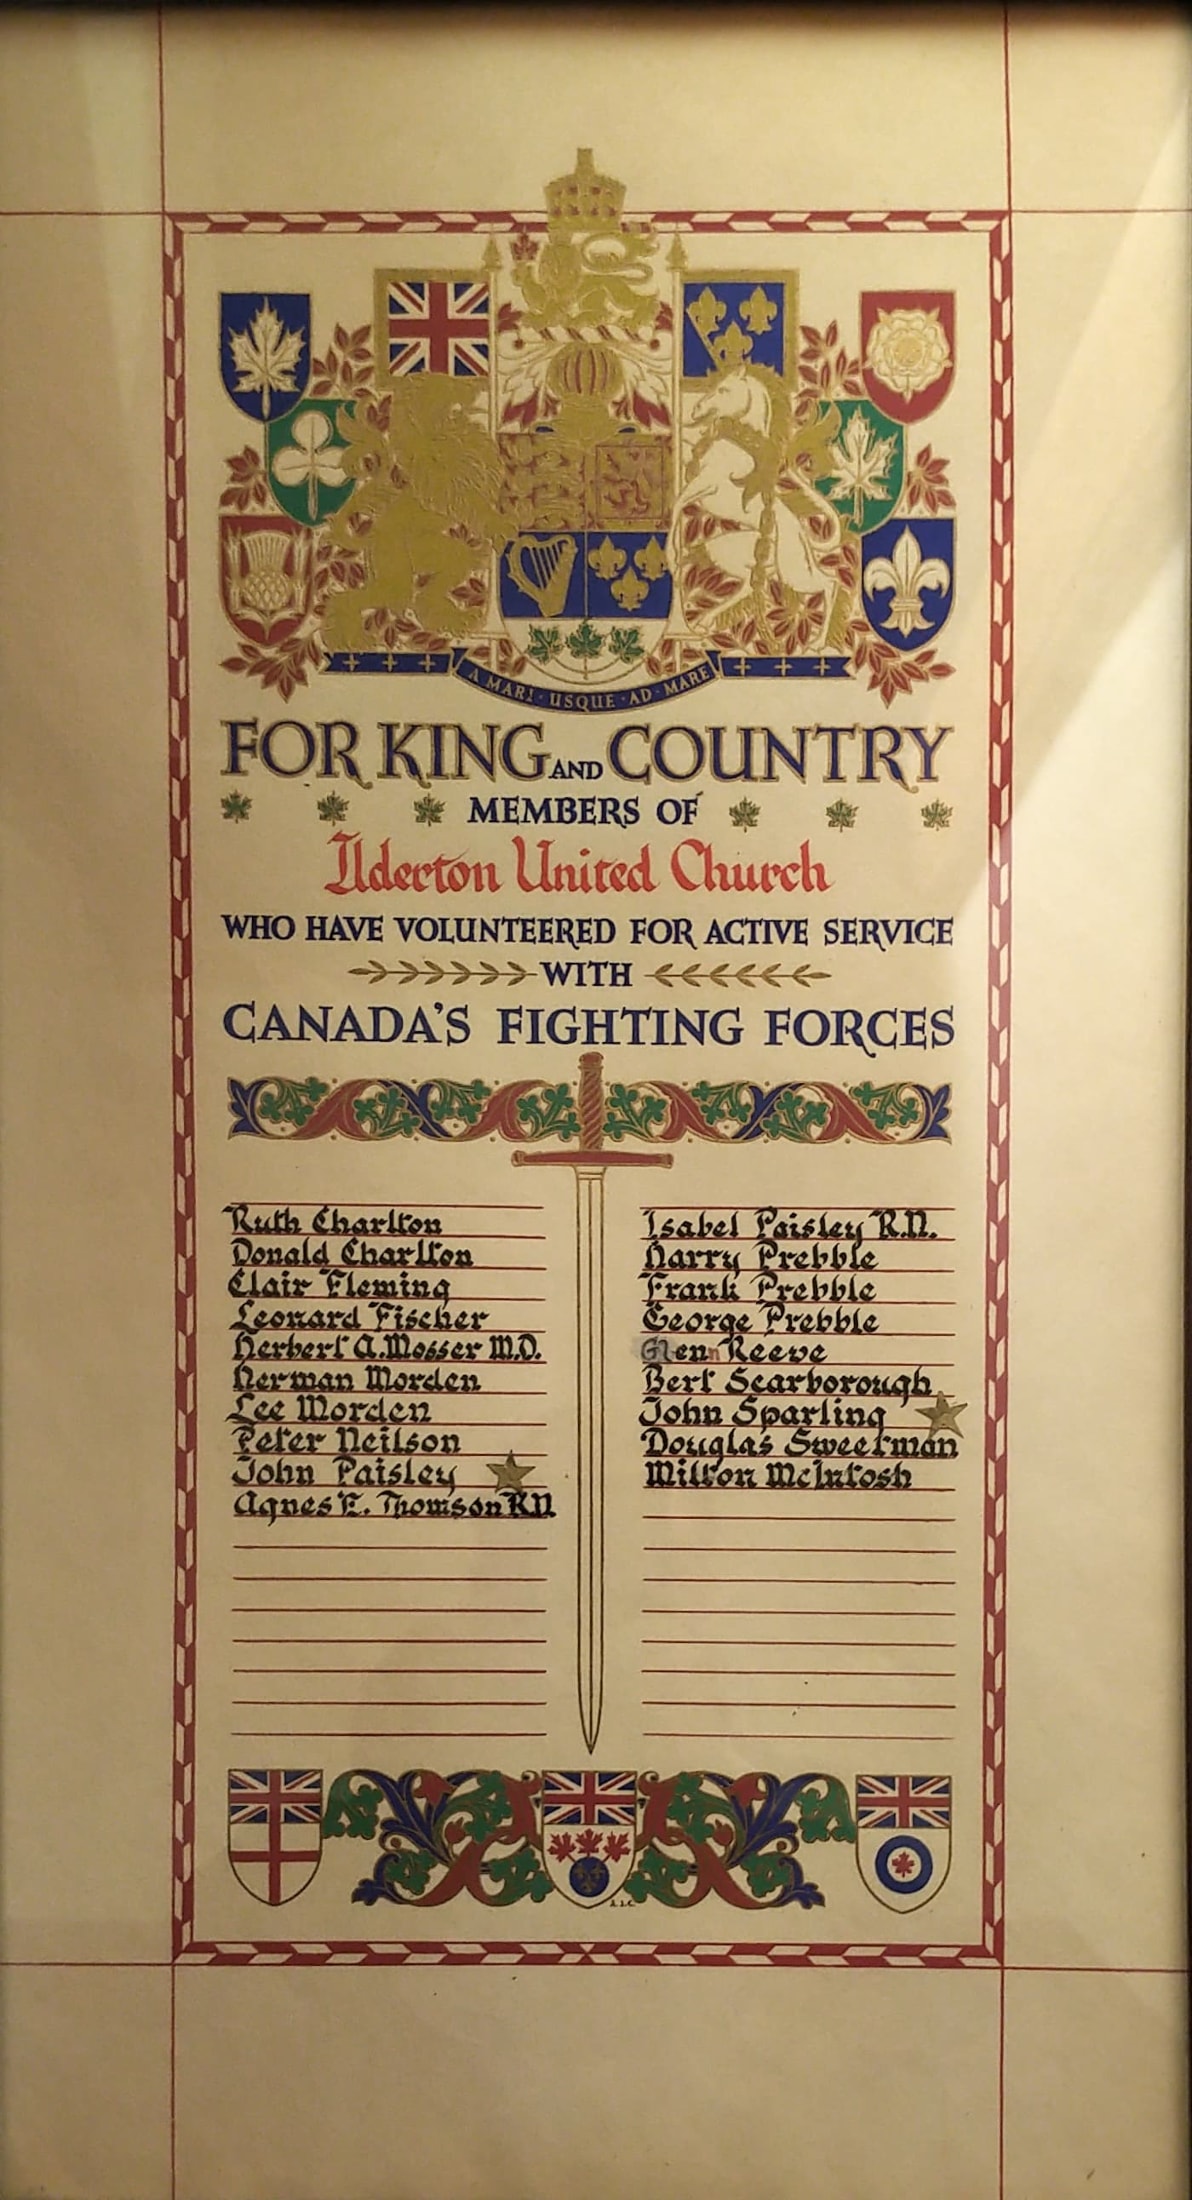 A MARI · USQUE · AD · MARE
FOR KING AND COUNTRY
MEMBERS OF
Ilderton United Church
WHO HAVE VOLUNTEERED FOR ACTIVE SERVICE
WITH
CANADA'S FIGHTING FORCES
Ruth Charlton
Donald Charlton
Clair Fleming
Leonard Fischer
Herbert A. Mosser M.D.
Herman Morden
Lee Morden
Peter Neilson
John Paisley
Agnes E. Thomson R.N.
Isabel Paisley R.N.
Harry Prebble
Frank Prebble
George Prebble
Glenn Reeve
Bert Scarborough
John Sparling
Douglas Sweetman
Milton McIntosh